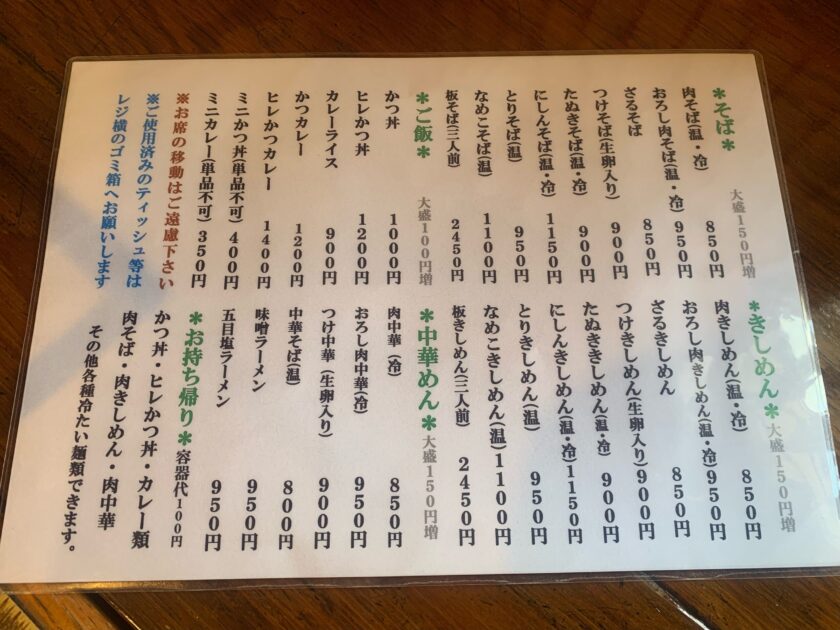 ＊そば＊ 大盛150円増
肉そば(温・冷) 850円
おろし肉そば(温・冷) 950円
ざるそば 850円
つけそば(生卵入り) 900円
たぬきそば(温・冷) 900円
にしんそば(温・冷) 1150円
とりそば(温) 950円
なめこそば(温) 1100円
板そば(三人前) 2450円
＊ご飯＊ 大盛100円増
かつ丼 1000円
ヒレかつ丼 1200円
カレーライス 900円
かつカレー 1200円
ヒレかつカレー 1400円
ミニかつ丼(単品不可) 400円
ミニカレー(単品不可) 350円
※お席の移動はご遠慮下さい
※ご使用済みのティッシュ等は
レジ横のゴミ箱へお願いします
＊きしめん＊ 大盛150円増
肉きしめん(温・冷) 850円
おろし肉きしめん(温・冷) 950円
ざるきしめん 850円
つけきしめん(生卵入り) 900円
たぬききしめん(温・冷) 900円
にしんきしめん(温・冷) 1150円
とりきしめん(温) 950円
なめこきしめん(温) 1100円
板きしめん(三人前) 2450円
＊中華めん＊ 大盛150円増
肉中華(冷) 850円
おろし肉中華(冷) 950円
つけ中華(生卵入り) 900円
中華そば(温) 800円
味噌ラーメン 950円
五目塩ラーメン 950円
＊お持ち帰り＊ 容器代100円
かつ丼・ヒレかつ丼・カレー類
肉そば・肉きしめん・肉中華
その他各種冷たい麺類できます。